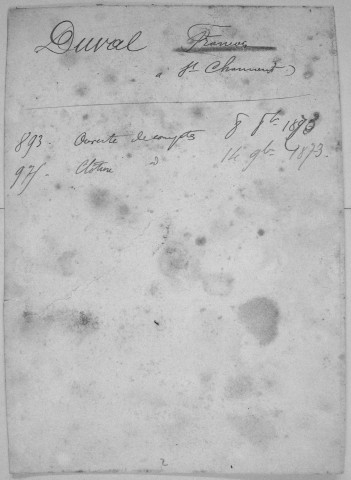 Duval François
à St Chamond
893. Ouverte de compte 8 8bre 1873
975. Clôture d° 14 9bre 1873.
2